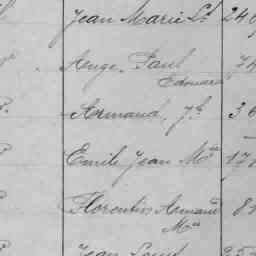 Jean Marie Ls 240
Ange. Paul 74
Edouard
Armand, Jh 36
Emile Jean Mie 171
Florentin Armand 8
Mie
Jean Louis